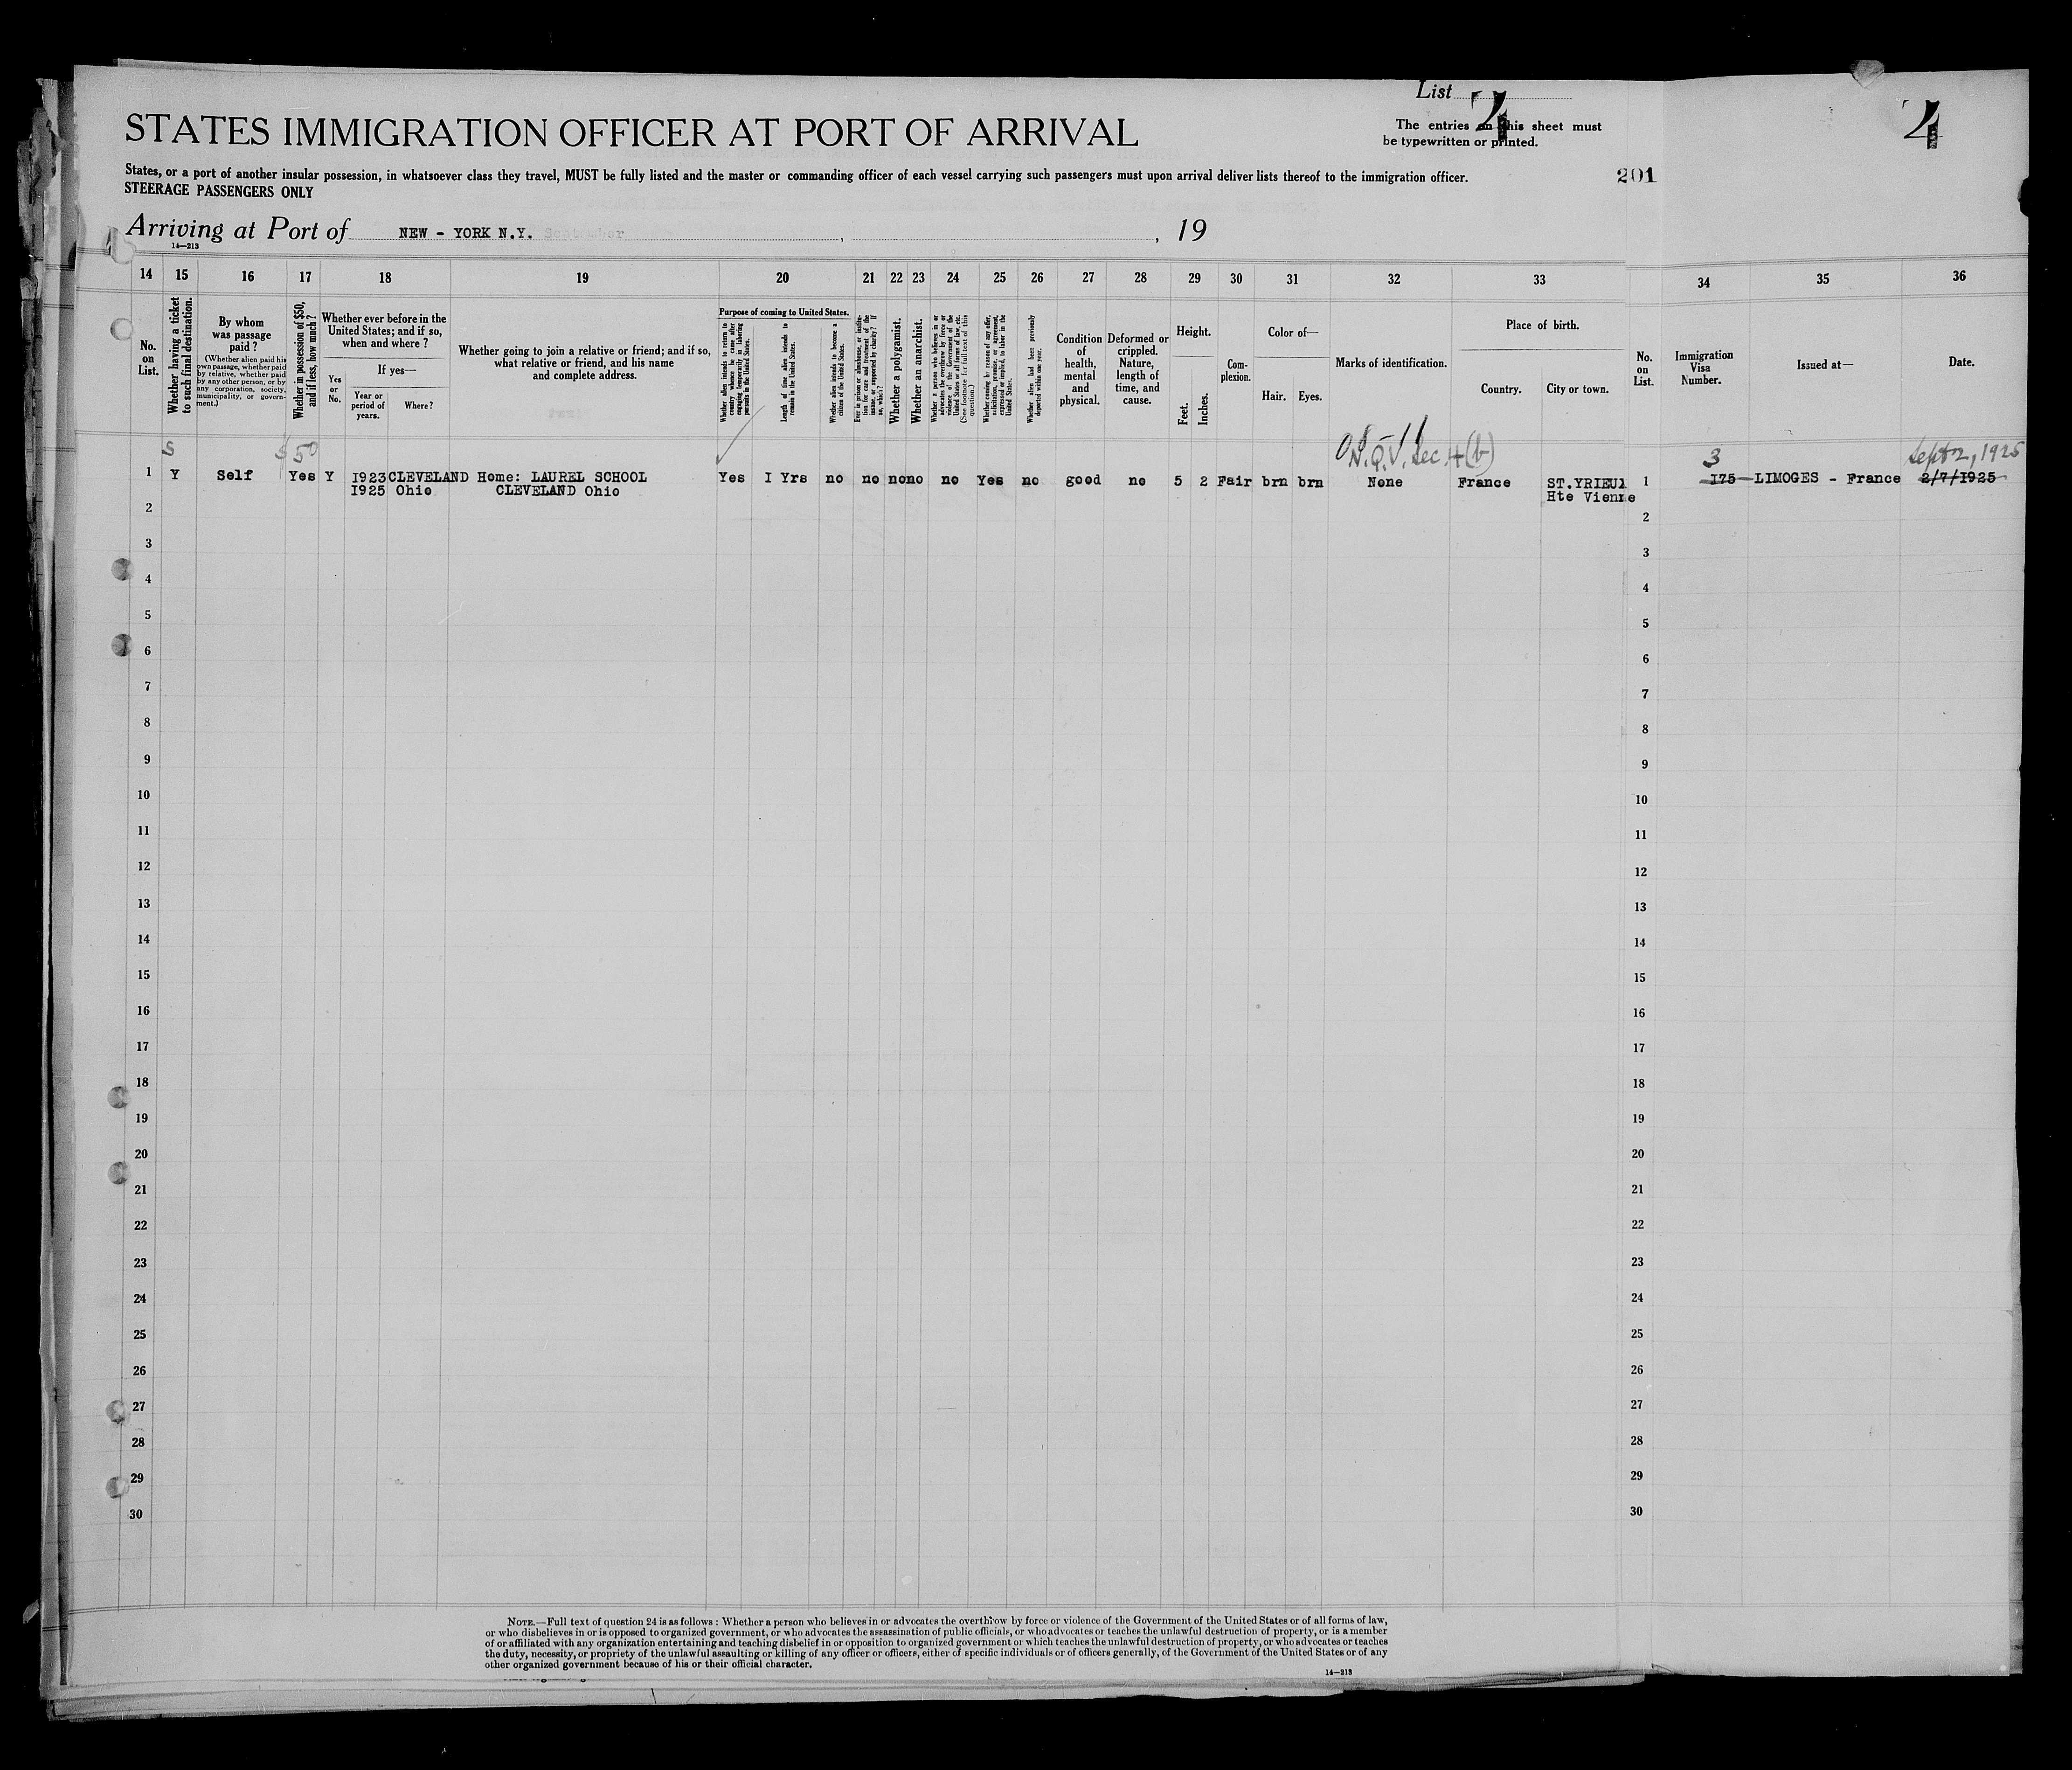 List 4
STATES IMMIGRATION OFFICER AT PORT OF ARRIVAL
The entries on this sheet must
be typewritten or printed.
4
States, or a port of another insular possession, in whatsoever class they travel, MUST be fully listed and the master or commanding officer of each vessel carrying such passengers must upon arrival deliver lists thereof to the immigration officer.
STEERAGE PASSENGERS ONLY
201
Arriving at Port of NEW - YORK N.Y. September , , 19
14—213
14 15 16 17 18 19 20 21 22 23 24 25 26 27 28 29 30 31 32 33 34 35 36
No. on List.
Whether having a ticket to such final destination.
By whom was passage paid?
(Whether alien paid his own passage, whether paid by relative, whether paid by any other person, or by any corporation, society, municipality, or government.)
Whether in possession of $50, and if less, how much?
Whether ever before in the United States; and if so, when and where?
Yes or No.
If yes—
Year or period of years.
Where?
Whether going to join a relative or friend; and if so, what relative or friend, and his name and complete address.
Purpose of coming to United States.
Whether alien intends to return to country whence he came after engaging temporarily in laboring pursuits in the United States.
Length of time alien intends to remain in the United States.
Whether alien intends to become a citizen of the United States.
Ever in prison or almshouse, or institution for care and treatment of the insane, or supported by charity? If so, which?
Whether a polygamist.
Whether an anarchist.
Whether a person who believes in or advocates the overthrow by force or violence of the Government of the United States or all forms of law, etc. (See footnote for full text of this question.)
Whether coming by reason of any offer, solicitation, promise, or agreement, expressed or implied, to labor in the United States.
Whether alien had been previously deported within one year.
Condition of health, mental and physical.
Deformed or crippled. Nature, length of time, and cause.
Height.
Feet. Inches.
Complexion.
Color of—
Hair. Eyes.
Marks of identification.
Place of birth.
Country. City or town.
No. on List.
Immigration Visa Number.
Issued at—
Date.
S $50 N.Q.V. Sec. 4(b) 3 Sept 2, 1925
1 Y Self Yes Y 1923 CLEVELAND Home: LAUREL SCHOOL Yes I Yrs no no no no no Yes no good no 5 2 Fair brn brn None France ST.YRIEUX 1 175 LIMOGES - France 2/7/1925
1925 Ohio CLEVELAND Ohio Hte Vienne
2 2
3 3
4 4
5 5
6 6
7 7
8 8
9 9
10 10
11 11
12 12
13 13
14 14
15 15
16 16
17 17
18 18
19 19
20 20
21 21
22 22
23 23
24 24
25 25
26 26
27 27
28 28
29 29
30 30
NOTE.—Full text of question 24 is as follows: Whether a person who believes in or advocates the overthrow by force or violence of the Government of the United States or of all forms of law,
or who disbelieves in or is opposed to organized government, or who advocates the assassination of public officials, or who advocates or teaches the unlawful destruction of property, or is a member
of or affiliated with any organization entertaining and teaching disbelief in or opposition to organized government or which teaches the unlawful destruction of property, or who advocates or teaches
the duty, necessity, or propriety of the unlawful assaulting or killing of any officer or officers, either of specific individuals or of officers generally, of the Government of the United States or of any
other organized government because of his or their official character.
14—213